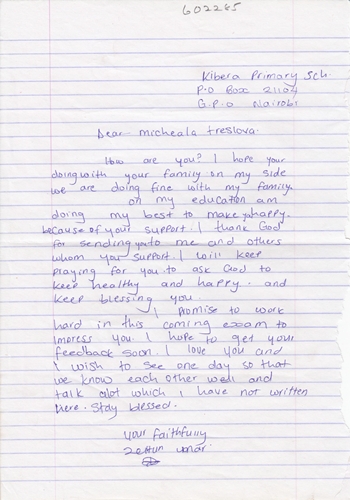 602285
Kibera Primary Sch.
P.O Box 21104
G.P.O Nairobi
Dear micheala treslova.
How are you? I hope your
doing with your family on my side
we are doing fine with my family.
on my education am
doing my best to make you happy.
because of your support. I thank God
for sending you to me and others
whom you support. I will keep
praying for you. to ask God to
keep healthy and happy. and
keep blessing you
I Promise to work
hard in this coming exam to
impress you. I hope to get your
feedback soon. I love you and
I wish to see one day so that
we know each other well and
talk alot which I have not written
here. Stay blessed.
your faithfully
umar.